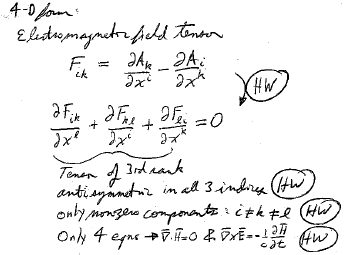 4-D form:
Electromagnetic field tensor
F_ik = ∂A_k/∂x^i - ∂A_i/∂x^k
HW
∂F_ik/∂x^l + ∂F_kl/∂x^i + ∂F_li/∂x^k = 0
Tensor of 3rd rank
antisymmetric in all 3 indices HW
only nonzero components: i≠k≠l HW
Only 4 eqns → ∇·H=0 & ∇×E=-1/c ∂H/∂t HW